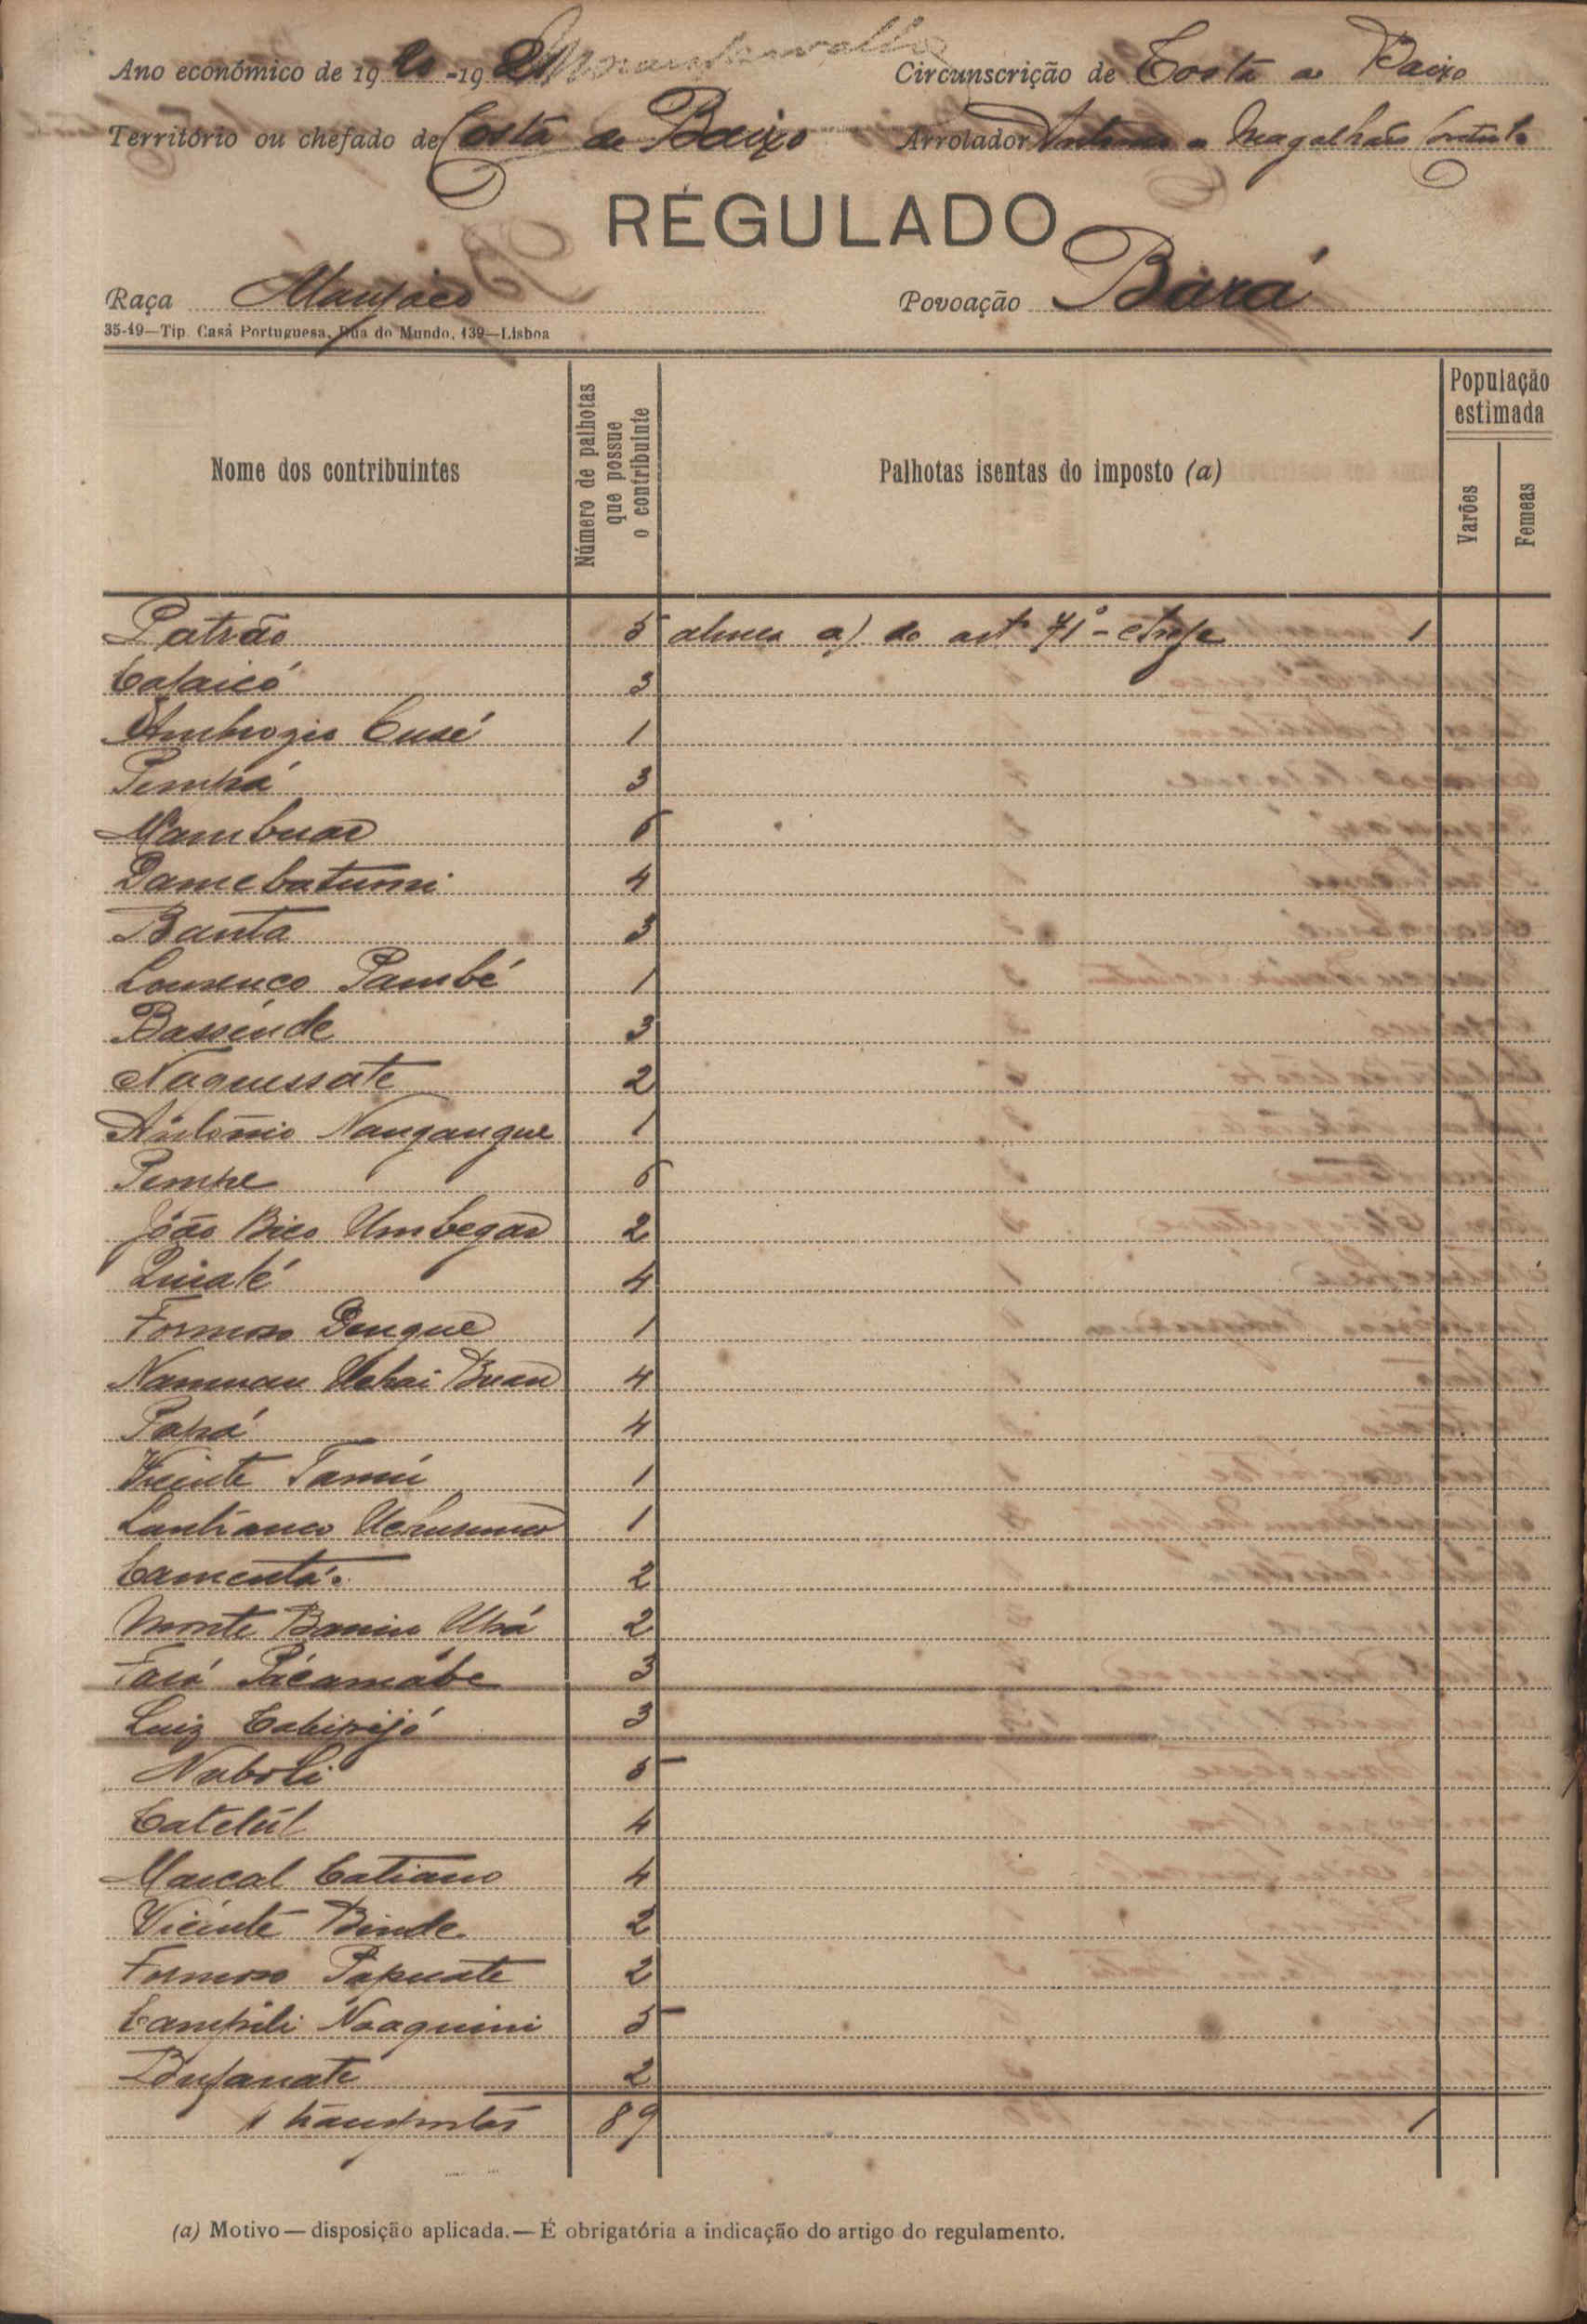 Ano económico de 1920-1921 Circunscrição de Costa de Baixo
Território ou chefado de Costa de Baixo Arrolador Antonio de Magalhães
REGULADO
Raça Manjaco Povoação Bará
35-19—Tip. Casa Portuguesa, Rua do Mundo, 139—Lisboa
Nome dos contribuintes
Número de palhotas que possue o contribuinte
Palhotas isentas do imposto (a)
População estimada
Varões
Femeas
Patrão 5 alinea a) do artº 71º - 1
Cajaicó 3
Ambrozio Cusé 1
Pempá 3
Mambuar 6
Damebatumi 4
Banta 3
Lourenço Pambé 1
Bassinde 3
Naquessate 2
António Nangangue 1
Pempe 6
João Bico Umbegar 2
Quiaté 4
Formoso Dengue 1
Namuau Buan 4
Papá 4
Vicente Tamú 1
1
Camentá 2
Monte Banin Upá 2
Faiá Pácamábe 3
Luiz 3
Naboli 5
Catelúl 4
Marcal Catiano 4
Vicente Binde 2
Formoso Papuate 2
Campili Naaquini 5
Bufanate 2
A transportar 89 1
(a) Motivo—disposição aplicada.—É obrigatória a indicação do artigo do regulamento.